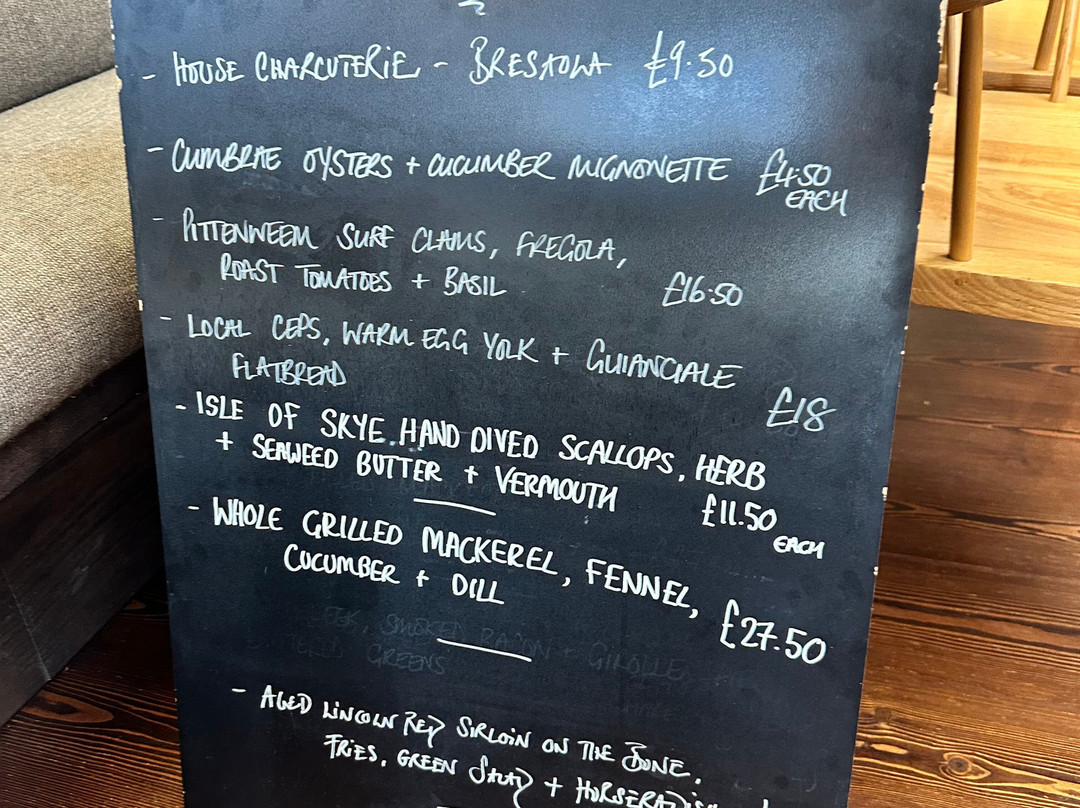 - HOUSE CHARCUTERIE - BRESAOLA £9.50
- CUMBRAE OYSTERS + CUCUMBER MIGNONETTE £4.50
EACH
- PITTENWEEM SURF CLAMS, FREGOLA,
ROAST TOMATOES + BASIL £16.50
- LOCAL CEPS, WARM EGG YOLK + GUIANCIALE
FLATBREAD £18
- ISLE OF SKYE HAND DIVED SCALLOPS, HERB
+ SEAWEED BUTTER + VERMOUTH £11.50
EACH
- WHOLE GRILLED MACKEREL, FENNEL,
CUCUMBER + DILL £27.50
SMOKED BACON + GIROLLE
GREENS
- AGED LINCOLN RED SIRLOIN ON THE BONE.
FRIES, GREEN SALAD + HORSERADISH